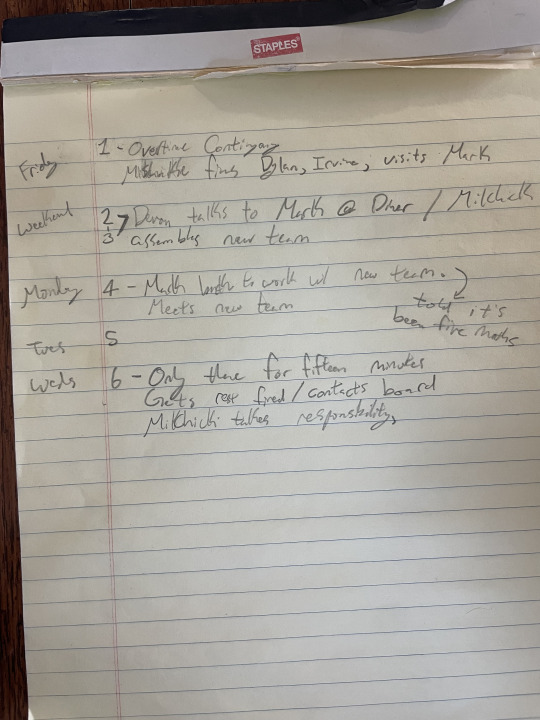 STAPLES
1 - Overtime Contingency
Friday fires Dylan, Irving, visits Mark
Weekend 2 Devon talks to Mark @ Diner / Milchick
3 assembles new team
Monday 4 - Mark back to work w/ new team.
Meets new team told it's
been five months
Tues 5
Weds 6 - Only there for fifteen minutes
Gets rest fired / contacts board
Milchick takes responsibility